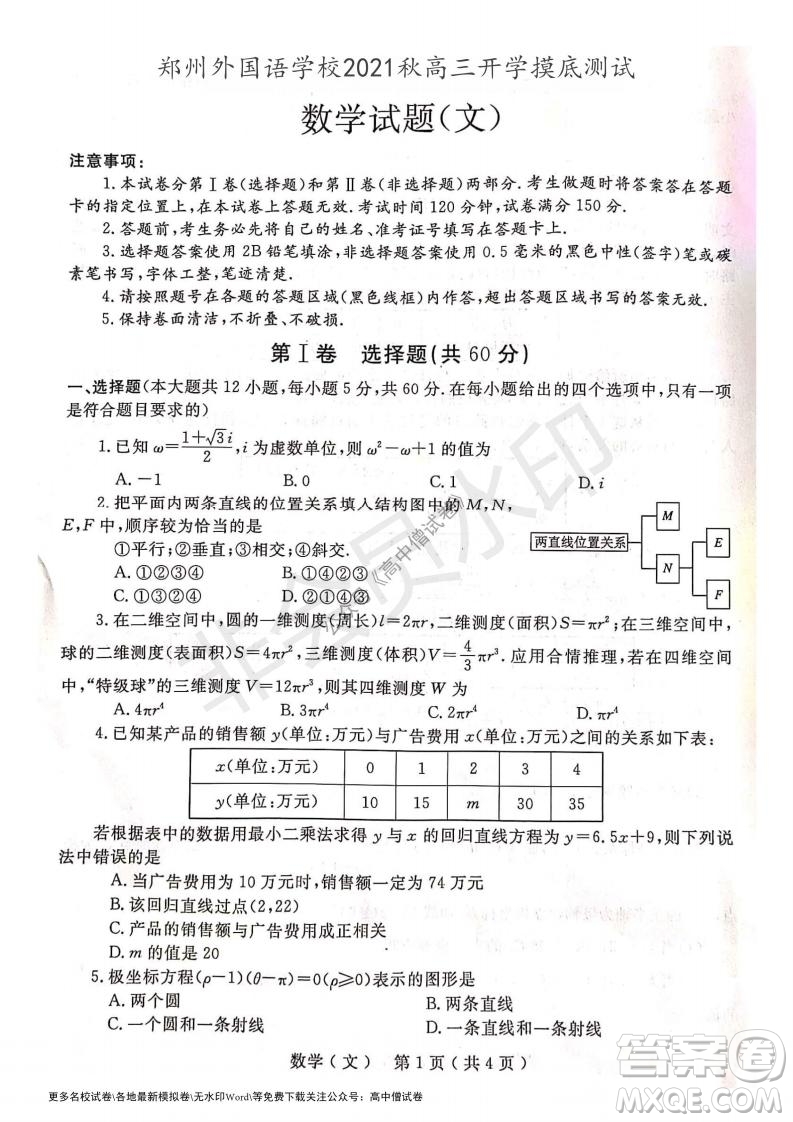 郑州外国语学校2021秋高三开学摸底测试
数学试题(文)
注意事项:
1.本试卷分第Ⅰ卷(选择题)和第Ⅱ卷(非选择题)两部分.考生做题时将答案答在答题
卡的指定位置上,在本试卷上答题无效.考试时间120分钟,试卷满分150分.
2.答题前,考生务必先将自己的姓名、准考证号填写在答题卡上.
3.选择题答案使用2B铅笔填涂,非选择题答案使用0.5毫米的黑色中性(签字)笔或碳
素笔书写,字体工整,笔迹清楚.
4.请按照题号在各题的答题区域(黑色线框)内作答,超出答题区域书写的答案无效.
5.保持卷面清洁,不折叠、不破损.
第Ⅰ卷 选择题(共60分)
一、选择题(本大题共12小题,每小题5分,共60分.在每小题给出的四个选项中,只有一项
是符合题目要求的)
1.已知ω=(1+√3i)/2,i为虚数单位,则ω²-ω+1的值为
A.-1 B.0 C.1 D.i
2.把平面内两条直线的位置关系填入结构图中的M,N,
E,F中,顺序较为恰当的是
①平行;②垂直;③相交;④斜交.
A.①②③④ B.①④②③
C.①③②④ D.②①④③
两直线位置关系 M N E F
3.在二维空间中,圆的一维测度(周长)l=2πr,二维测度(面积)S=πr²;在三维空间中,
球的二维测度(表面积)S=4πr²,三维测度(体积)V=4/3πr³.应用合情推理,若在四维空间
中,“特级球”的三维测度V=12πr³,则其四维测度W为
A.4πr⁴ B.3πr⁴ C.2πr⁴ D.πr⁴
4.已知某产品的销售额y(单位:万元)与广告费用x(单位:万元)之间的关系如下表:
x(单位:万元) 0 1 2 3 4
y(单位:万元) 10 15 m 30 35
若根据表中的数据用最小二乘法求得y与x的回归直线方程为y=6.5x+9,则下列说
法中错误的是
A.当广告费用为10万元时,销售额一定为74万元
B.该回归直线过点(2,22)
C.产品的销售额与广告费用成正相关
D.m的值是20
5.极坐标方程(ρ-1)(θ-π)=0(ρ≥0)表示的图形是
A.两个圆 B.两条直线
C.一个圆和一条射线 D.一条直线和一条射线
数学(文) 第1页(共4页)
更多名校试卷\各地最新模拟卷\无水印Word\等免费下载关注公众号:高中僧试卷
非会员水印
公众号《高中僧试卷》